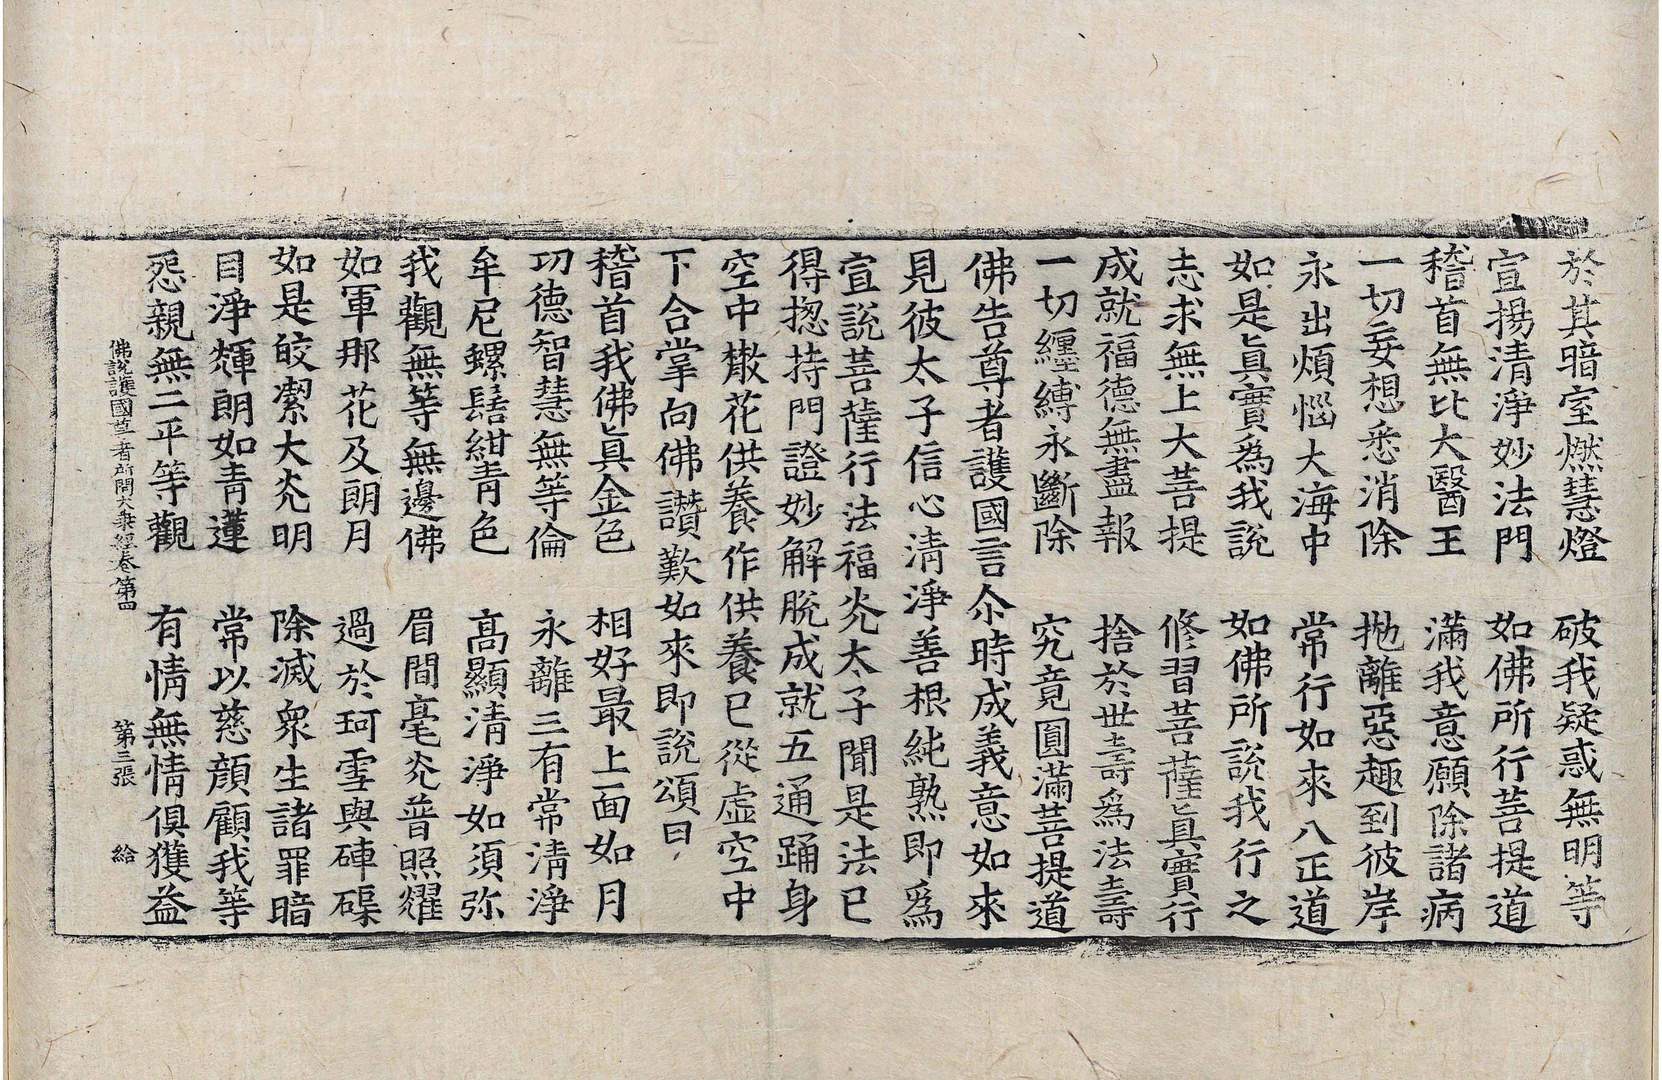 於其暗室燃慧燈　破我疑惑無明等
宣揚清淨妙法門　如佛所行菩提道
稽首無比大醫王　滿我意願除諸病
一切妄想悉消除　拋離惡趣到彼岸
永出煩惱大海中　常行如來八正道
如是真實為我說　如佛所說我行之
志求無上大菩提　修習菩薩真實行
成就福德無盡報　捨於世壽為法壽
一切纏縛永斷除　究竟圓滿菩提道
佛告尊者護國言尒時成義意如來
見彼太子信心清淨善根純熟即為
宣說菩薩行法福光太子聞是法已
得揔持門證妙解脫成就五通踊身
空中散花供養作供養已從虛空中
下合掌向佛讚歎如來即說頌曰
稽首我佛真金色　相好最上面如月
功德智慧無等倫　永離三有常清淨
牟尼螺髻紺青色　高顯清淨如須弥
我觀無等無邊佛　眉間毫光普照耀
如軍那花及朗月　過於珂雪與硨磲
如是皎潔大光明　除滅眾生諸罪暗
目淨輝朗如青蓮　常以慈顔顧我等
怨親無二平等觀　有情無情俱獲益
佛說護國尊者所問大乘經卷第四　第三張　給